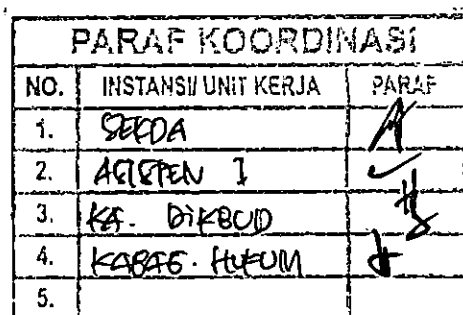 PARAF KOORDINASI
NO. INSTANSI/ UNIT KERJA PARAF
1. SEKDA
2. ASISTEN I
3. KA. DIKBUD
4. KABAG. HUKUM
5.